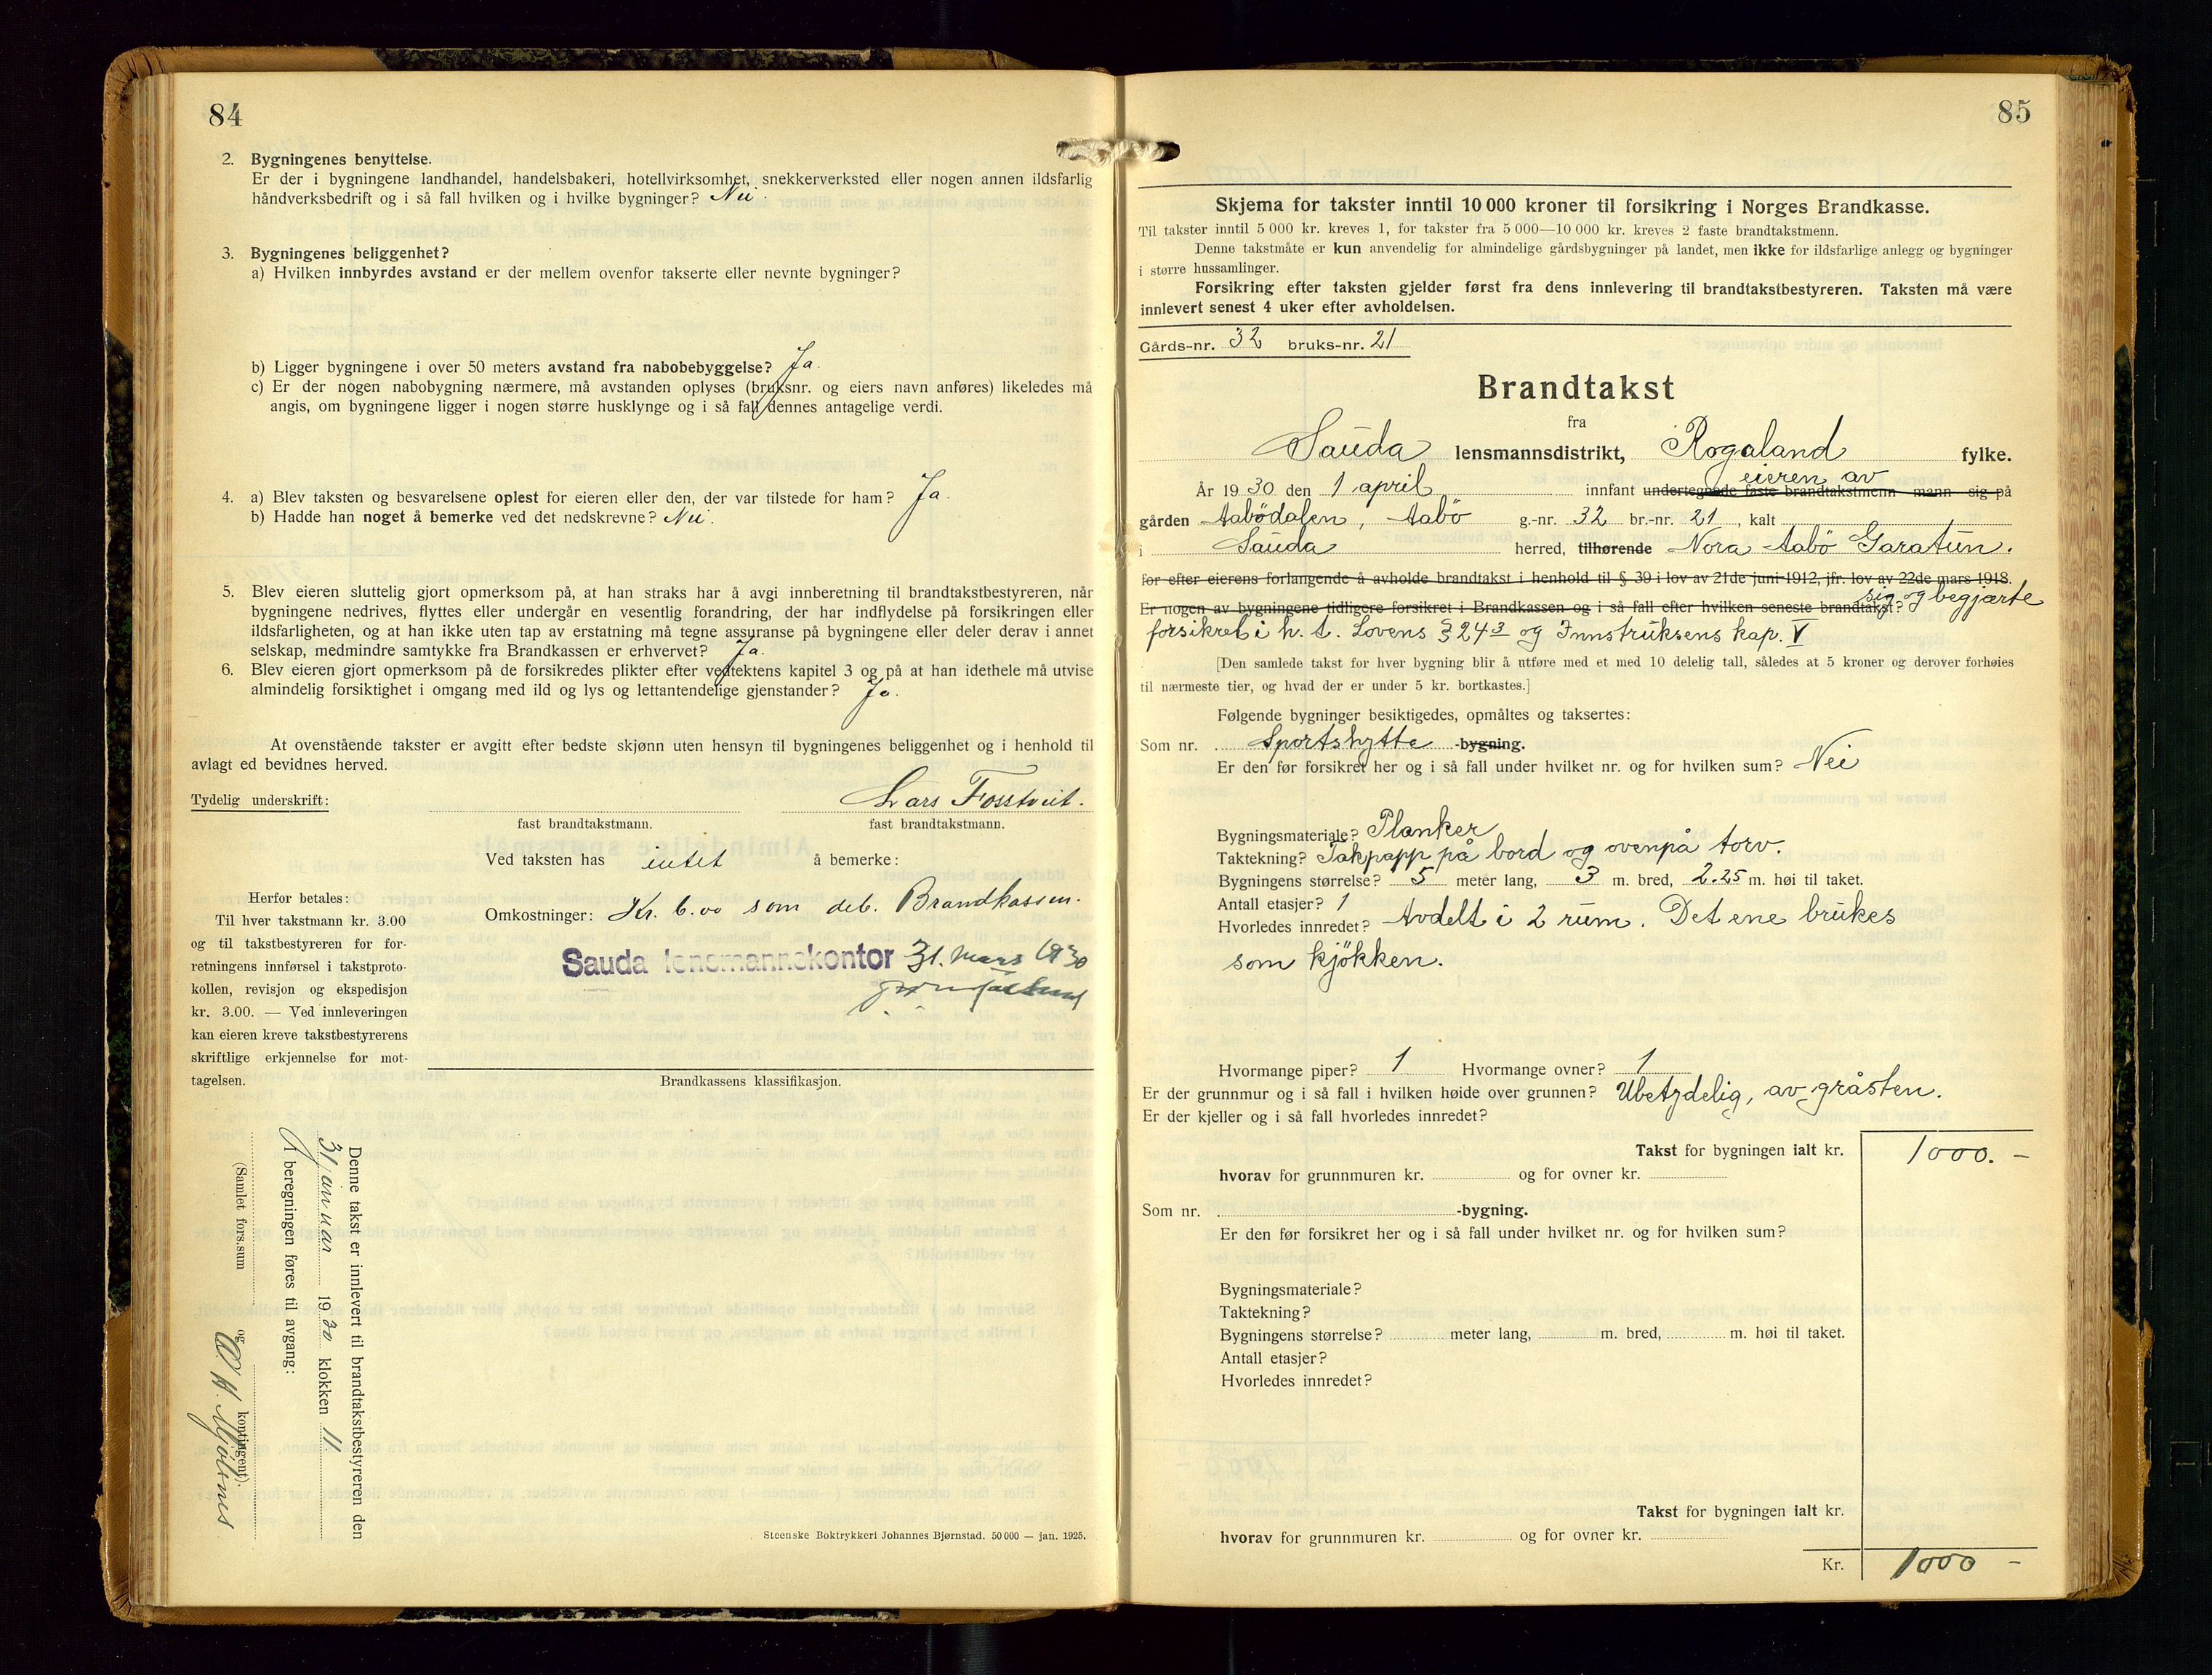 84
2. Bygningenes benyttelse.
Er der i bygningene landhandel, handelsbakeri, hotellvirksomhet, snekkerverksted eller nogen annen ildsfarlig
håndverksbedrift og i så fall hvilken og i hvilke bygninger? Nei.
3. Bygningenes beliggenhet?
a) Hvilken innbyrdes avstand er der mellem ovenfor takserte eller nevnte bygninger?
b) Ligger bygningene i over 50 meters avstand fra nabobebyggelse? Ja.
c) Er der nogen nabobygning nærmere, må avstanden oplyses (bruksnr. og eiers navn anføres) likeledes må
angis, om bygningene ligger i nogen større husklynge og i så fall dennes antagelige verdi.
4. a) Blev taksten og besvarelsene oplest for eieren eller den, der var tilstede for ham? Ja.
b) Hadde han noget å bemerke ved det nedskrevne? Nei.
5. Blev eieren sluttelig gjort opmerksom på, at han straks har å avgi innberetning til brandtakstbestyreren, når
bygningene nedrives, flyttes eller undergår en vesentlig forandring, der har indflydelse på forsikringen eller
ildsfarligheten, og at han ikke uten tap av erstatning må tegne assuranse på bygningene eller deler derav i annet
selskap, medmindre samtykke fra Brandkassen er erhvervet? Ja.
6. Blev eieren gjort opmerksom på de forsikredes plikter efter vedtektens kapitel 3 og på at han idethele må utvise
almindelig forsiktighet i omgang med ild og lys og lettantendelige gjenstander? Ja.
At ovenstående takster er avgitt efter bedste skjønn uten hensyn til bygningenes beliggenhet og i henhold til
avlagt ed bevidnes herved.
Tydelig underskrift: Lars Fosstveit.
fast brandtakstmann. fast brandtakstmann.
Ved taksten has intet å bemerke:
Omkostninger: Kr. 6.00 som deb. Brandkassen.
Sauda lensmannskontor 31. mars 1930
Herfor betales:
Til hver takstmann kr. 3.00
og til takstbestyreren for for-
retningens innførsel i takstproto-
kollen, revisjon og ekspedisjon
kr. 3.00. — Ved innleveringen
kan eieren kreve takstbestyrerens
skriftlige erkjennelse for mot-
tagelsen.
Brandkassens klassifikasjon.
Denne takst er innlevert til brandtakstbestyreren den
31 januar 1930 klokken 11
I beregningen føres til avgang:
(Samlet fors.sum og kontingent).
Steenske Boktrykkeri Johannes Bjørnstad. 50 000 — jan. 1925.
85
Skjema for takster inntil 10 000 kroner til forsikring i Norges Brandkasse.
Til takster inntil 5 000 kr. kreves 1, for takster fra 5 000—10 000 kr. kreves 2 faste brandtakstmenn.
Denne takstmåte er kun anvendelig for almindelige gårdsbygninger på landet, men ikke for ildsfarlige anlegg og bygninger
i større hussamlinger.
Forsikring efter taksten gjelder først fra dens innlevering til brandtakstbestyreren. Taksten må være
innlevert senest 4 uker efter avholdelsen.
Gårds-nr. 32 bruks-nr. 21
Brandtakst
fra
Sauda lensmannsdistrikt, Rogaland fylke.
eieren av
År 1930 den 1 april innfant undertegnede faste brandtakstmenn mann sig på
gården Aabödalen, Aabö g.-nr. 32 br.-nr. 21, kalt
i Sauda herred, tilhørende Nora Aabö Garatun.
for efter eierens forlangende å avholde brandtakst i henhold til § 39 i lov av 21de juni 1912, jfr. lov av 22de mars 1918.
sig og begjærte
Er nogen av bygningene tidligere forsikret i Brandkassen og i så fall efter hvilken seneste brandtakst?
forsikret i h. t. Lovens § 24³ og Innstruksens kap. V
[Den samlede takst for hver bygning blir å utføre med et med 10 delelig tall, således at 5 kroner og derover forhøies
til nærmeste tier, og hvad der er under 5 kr. bortkastes.]
Følgende bygninger besiktigedes, opmåltes og taksertes:
Som nr. Sportshytte -bygning.
Er den før forsikret her og i så fall under hvilket nr. og for hvilken sum? Nei
Bygningsmateriale? Planker
Taktekning? Takpapp på bord og ovenpå torv.
Bygningens størrelse? 5 meter lang, 3 m. bred, 2.25 m. høi til taket.
Antall etasjer? 1
Hvorledes innredet? Avdelt i 2 rum. Det ene brukes
som kjökken.
Hvormange piper? 1 Hvormange ovner? 1
Er der grunnmur og i så fall i hvilken høide over grunnen? Ubetydelig, av gråsten.
Er der kjeller og i så fall hvorledes innredet?
Takst for bygningen ialt kr. 1000. –
hvorav for grunnmuren kr. og for ovner kr.
Som nr. -bygning.
Er den før forsikret her og i så fall under hvilket nr. og for hvilken sum?
Bygningsmateriale?
Taktekning?
Bygningens størrelse? meter lang, m. bred, m. høi til taket.
Antall etasjer?
Hvorledes innredet?
Takst for bygningen ialt kr.
hvorav for grunnmuren kr. og for ovner kr.
Kr. 1000 –